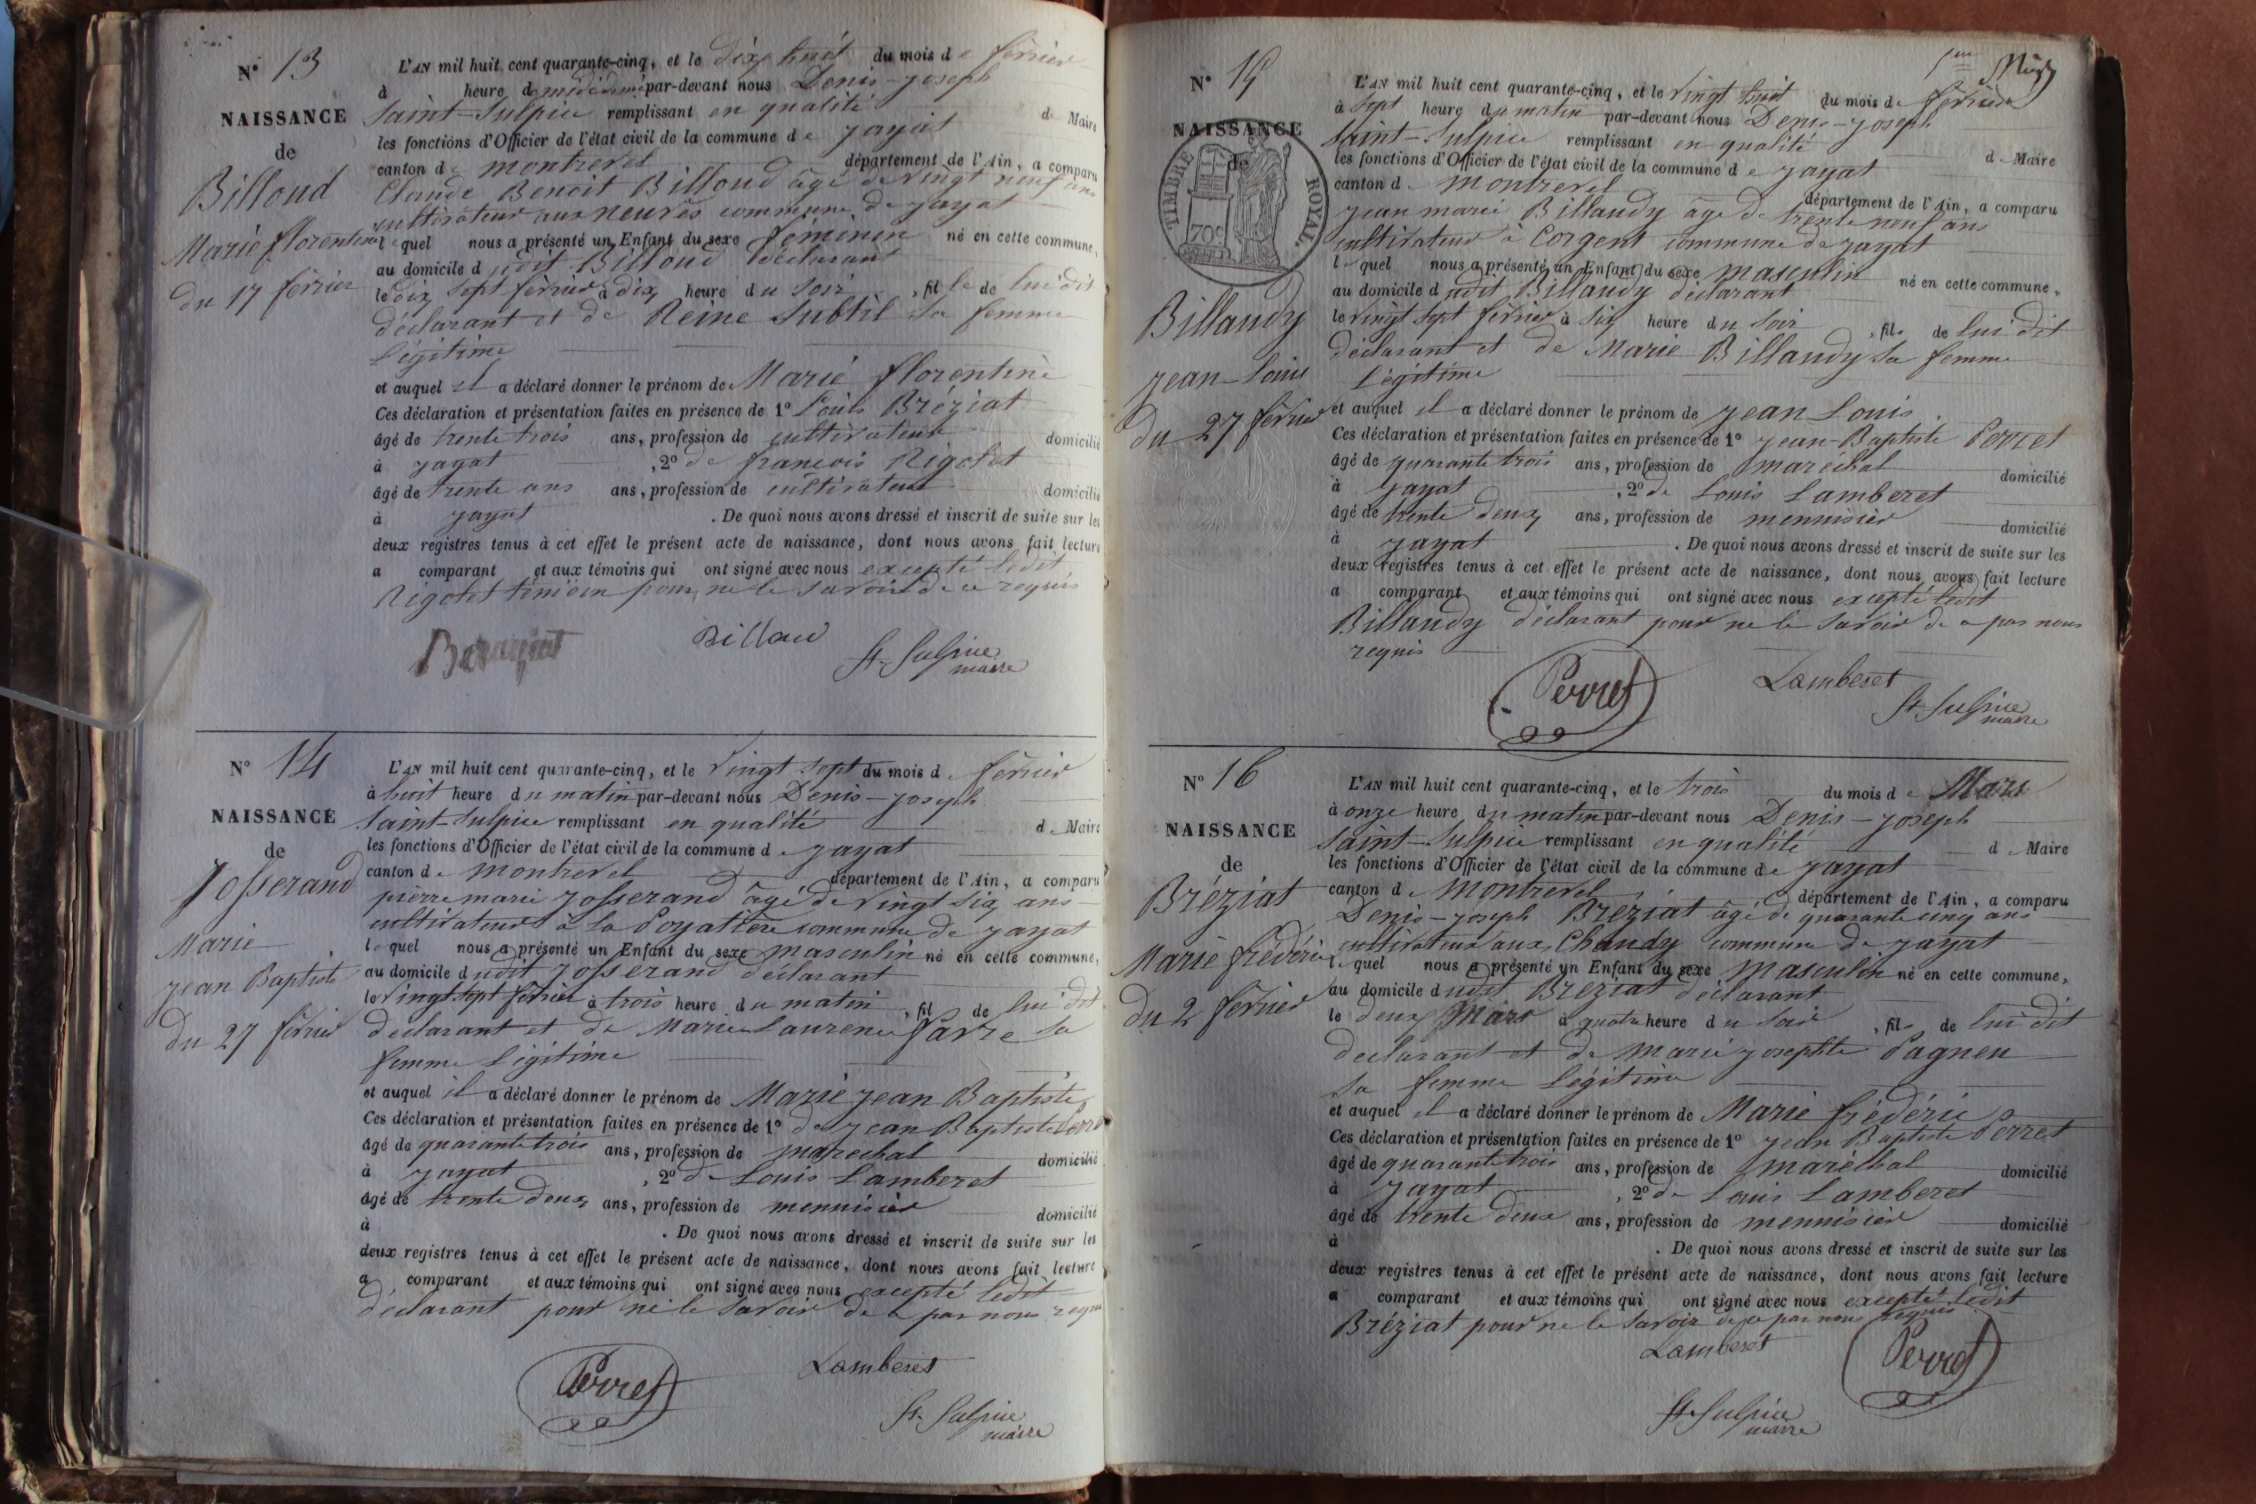 N° 13
NAISSANCE
de
Billoud
Marie florentine
du 17 février
L'AN mil huit cent quarante-cinq, et le dix huit du mois de février
à heure de midi par-devant nous Denis-Joseph
Saint-Sulpice remplissant en qualité de Maire
les fonctions d'Officier de l'état civil de la commune de jayat
canton de montrevel département de l'Ain, a comparu
Claude Benoit Billoud âgé de vingt neuf ans
cultivateur aux neures commune de jayat
lequel nous a présenté un Enfant du sexe féminin né en cette commune,
au domicile dudit Billoud déclarant
le dix sept février à dix heure du soir, fille de lui dit
déclarant et de Reine Subtil sa femme
légitime
et auquel il a déclaré donner le prénom de Marie florentine
Ces déclaration et présentation faites en présence de 1° Louis Bréziat
âgé de trente trois ans, profession de cultivateur domicilié
à jayat, 2° de françois Rigolet
âgé de trente ans ans, profession de cultivateur domicilié
à jayat. De quoi nous avons dressé et inscrit de suite sur les
deux registres tenus à cet effet le présent acte de naissance, dont nous avons fait lecture
a comparant et aux témoins qui ont signé avec nous excepté ledit
Rigolet témoin pour ne le savoir de ce requis
Billoud
St Sulpice
maire
N° 14
NAISSANCE
de
Josserand
Marie
jean Baptiste
du 27 février
L'AN mil huit cent quarante-cinq, et le vingt sept du mois de février
à huit heure du matin par-devant nous Denis-Joseph
Saint-Sulpice remplissant en qualité de Maire
les fonctions d'Officier de l'état civil de la commune de jayat
canton de montrevel département de l'Ain, a comparu
pierre marie Josserand âgé de vingt six ans
cultivateur à la Poyatière commune de jayat
lequel nous a présenté un Enfant du sexe masculin né en cette commune,
au domicile dudit Josserand déclarant
le vingt sept février à trois heure du matin, fil de lui dit
declarant et de Marie Laurence favre sa
femme légitime
et auquel il a déclaré donner le prénom de Marie jean Baptiste
Ces déclaration et présentation faites en présence de 1° de jean Baptiste Perret
âgé de quarante trois ans, profession de maréchal domicilié
à jayat, 2° de Louis Lamberet
âgé de trente deux ans, profession de mennisier domicilié
à . De quoi nous avons dressé et inscrit de suite sur les
deux registres tenus à cet effet le présent acte de naissance, dont nous avons fait lecture
a comparant et aux témoins qui ont signé avec nous excepté ledit
déclarant pour ne le savoir de ce par nous requis
Perret
Lamberet
St Sulpice
maire
N° 15
NAISSANCE
de
TIMBRE ROYAL.
70c
Billaudy
jean-Louis
du 27 février
L'AN mil huit cent quarante-cinq, et le vingt huit du mois de février
à sept heure du matin par-devant nous Denis-Joseph
Saint-Sulpice remplissant en qualité de Maire
les fonctions d'Officier de l'état civil de la commune de jayat
canton de montrevel département de l'Ain, a comparu
jean marie Billaudy âgé de trente neuf ans
cultivateur à Corgent commune de jayat
lequel nous a présenté un Enfant du sexe masculin né en cette commune,
au domicile dudit Billaudy déclarant
le vingt sept février à six heure du soir, fils de lui dit
déclarant et de Marie Billaudy sa femme
légitime
et auquel il a déclaré donner le prénom de jean Louis
Ces déclaration et présentation faites en présence de 1° jean-Baptiste Perret
âgé de quarante trois ans, profession de maréchal domicilié
à jayat, 2° de Louis Lamberet
âgé de trente deux ans, profession de mennisier domicilié
à jayat. De quoi nous avons dressé et inscrit de suite sur les
deux registres tenus à cet effet le présent acte de naissance, dont nous avons fait lecture
a comparant et aux témoins qui ont signé avec nous excepté ledit
Billaudy déclarant pour ne le savoir de ce par nous
requis
Perret
Lamberet
St Sulpice
maire
N° 16
NAISSANCE
de
Bréziat
Marie frédéric
du 2 février
L'AN mil huit cent quarante-cinq, et le trois du mois de Mars
à onze heure du matin par-devant nous Denis-Joseph
Saint-Sulpice remplissant en qualité de Maire
les fonctions d'Officier de l'état civil de la commune de jayat
canton de montrevel département de l'Ain, a comparu
Denis-joseph Breziat âgé de quarante cinq ans
cultivateur aux Chandy commune de jayat
lequel nous a présenté un Enfant du sexe Masculin né en cette commune,
au domicile dudit Breziat déclarant
le deux Mars à quatre heure du soir, fils de lui dit
declarant et de Marie josephte Pagneu
sa femme légitime
et auquel il a déclaré donner le prénom de Marie frédéric
Ces déclaration et présentation faites en présence de 1° jean Baptiste Perret
âgé de quarante trois ans, profession de maréchal domicilié
à jayat, 2° de Louis Lamberet
âgé de trente deux ans, profession de mennisier domicilié
à . De quoi nous avons dressé et inscrit de suite sur les
deux registres tenus à cet effet le présent acte de naissance, dont nous avons fait lecture
a comparant et aux témoins qui ont signé avec nous excepté ledit
Bréziat pour ne le savoir de ce par nous requis
Lamberet
Perret
St Sulpice
maire